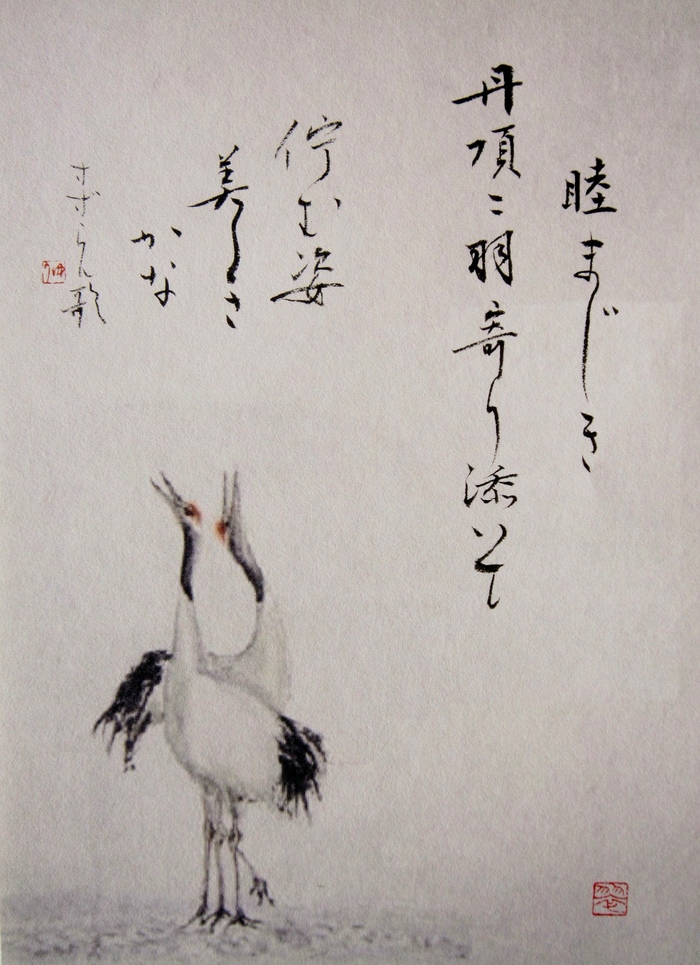 睦まじき
丹頂二羽寄り添いて
佇む姿
美しさ
かな
すずらん歌